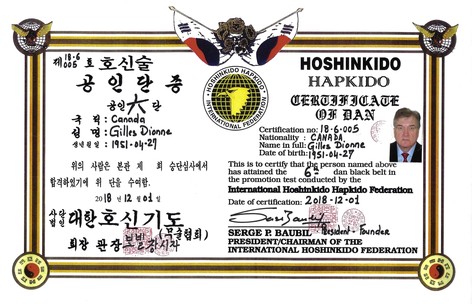 제 18-6 005 호 호신술
공인단증
공인 六 단
국적: Canada
성명: Gilles Dionne
생년월일: 1951-04-27
위의 사람은 본관 제 회 승단심사에서
합격하였기에 위 단을 수여함.
2018 년 12 월 01 일
사단법인 대한호신기도 (무술협회)
회장 관장
HOSHINKIDO HAPKIDO
INTERNATIONAL FEDERATION
HOSHINKIDO
HAPKIDO
CERTIFICATE
OF DAN
Certification no: 18-6-005
Nationality : CANADA
Name in full: Gilles Dionne
Date of birth: 1951-04-27
This is to certify that the person named above
has attained the 6th dan black belt in
the promotion test conducted by the
International Hoshinkido Hapkido Federation
Date of certification: 2018-12-01
President - Founder
SERGE P. BAUBIL
PRESIDENT/CHAIRMAN OF THE
INTERNATIONAL HOSHINKIDO FEDERATION